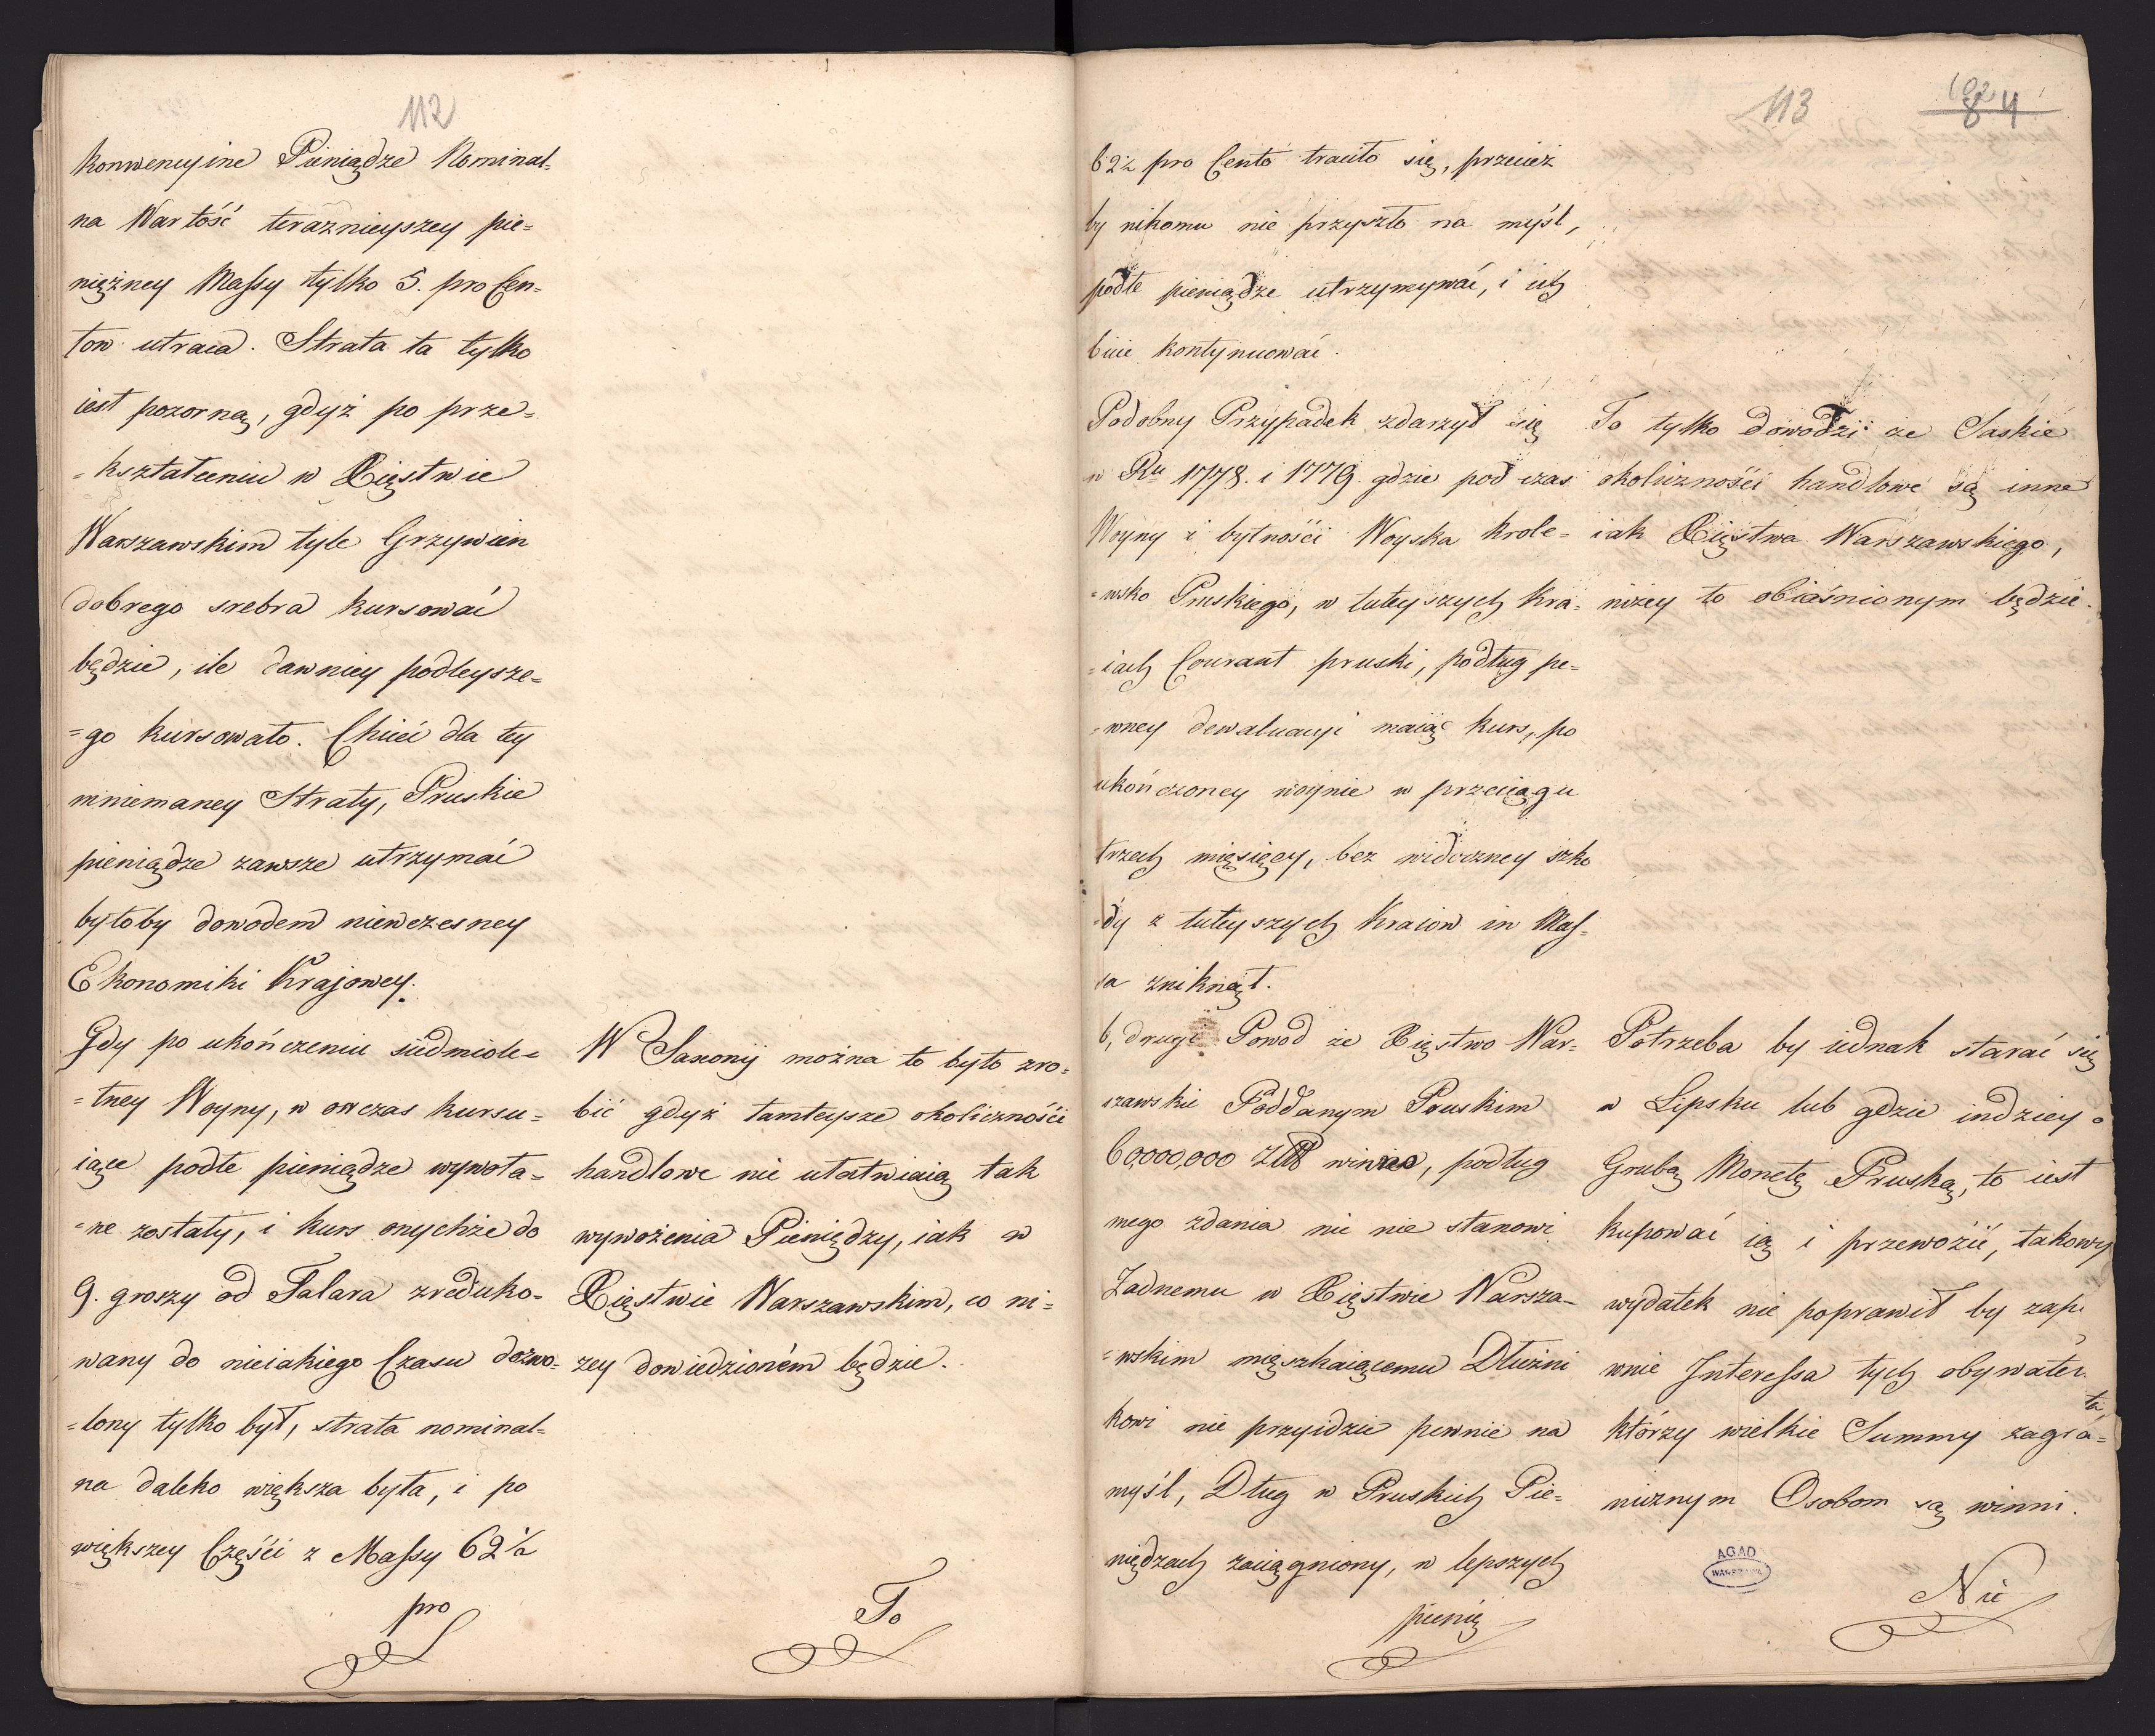 112
konwencyine Pieniądze Nominal-
na Wartość teraznieyszey pie=
niężney Massy tylko 5. pro Cen-
tow utraca. Strata ta tylko
iest pozorną, gdyż po prze=
=kształceniu w Xięstwie
Warszawskim tyle Grzywien
dobrego srebra kursować
będzie, ile dawniey podleysze=
=go kursowało. Chcieć dla tey
mniemaney Straty, Pruskie
pieniądze zawsze utrzymać
byłoby dowodem niewczesney
Ekonomiki Krajowey.
Gdy po ukończeniu siedmiole=
=tney Woyny, w owczas kursu=
iące podłe pieniądze wywoła=
=ne zostały, i kurs onychże do
9. groszy od Talara zreduko-
wany do nieiakiego Czasu dozwo-
=lony tylko był, strata nominal=
na daleko większa była, i po
większey Części z Massy 62½
pro
W Saxonij można to było zro=
bić gdyż tamteysze okoliczności
handlowe nie ułatwiaią tak
wywożenia Pieniędzy, iak w
Xięstwie Warszawskim, co ni=
zey dowiedzioném będzie.
To
113
84
62½ pro Cento traciło się, przecież
by nikomu nie przyszło na myśl,
podłe pieniądze utrzymywać, i ich
bicie kontynuować.
Podobny Przypadek zdarzył się
w Ru 1778. i 1779. gdzie pod czas
Woyny i bytności Woyska krole=
=wsko Pruskiego, w tuteyszych Kra=
=iach Courant pruski, podług pe=
=wney dewaluacyi maiąc kurs, po
ukończoney woynie w przeciągu
trzech mięsięcy, bez widoczney szko
=dy z tuteyszych Kraiow in Mas=
sa zniknął.
b, drugi Powod że Xięstwo War=
szawskie Poddanym Pruskim
60,000,000 Złł winno, podług
mego zdania nic nie stanowi
Żadnemu w Xięstwie Warsza-
=wskim mięszkaiącemu Dłużni
kowi nie przyidzie pewnie na
myśl, Dług w Pruskich Pie=
niędzach zaciągniony, w lepszych
pienię
To tylko dowodzi że Saskie
okoliczności handlowe są inne
iak Xięstwa Warszawskiego,
niżey to obiaśnionym będzie.
Potrzeba by iednak starać się
w Lipsku lub gdzie indziey o
Grubą Monetę Pruską, to iest
kupować ią i przewozić, takowy
wydatek nie poprawił by zape
wnie Interessa tych obywateli
którzy wielkie Summy zagra=
nicznym Osobom są winni.
AGAD
WARSZAWA
Nie